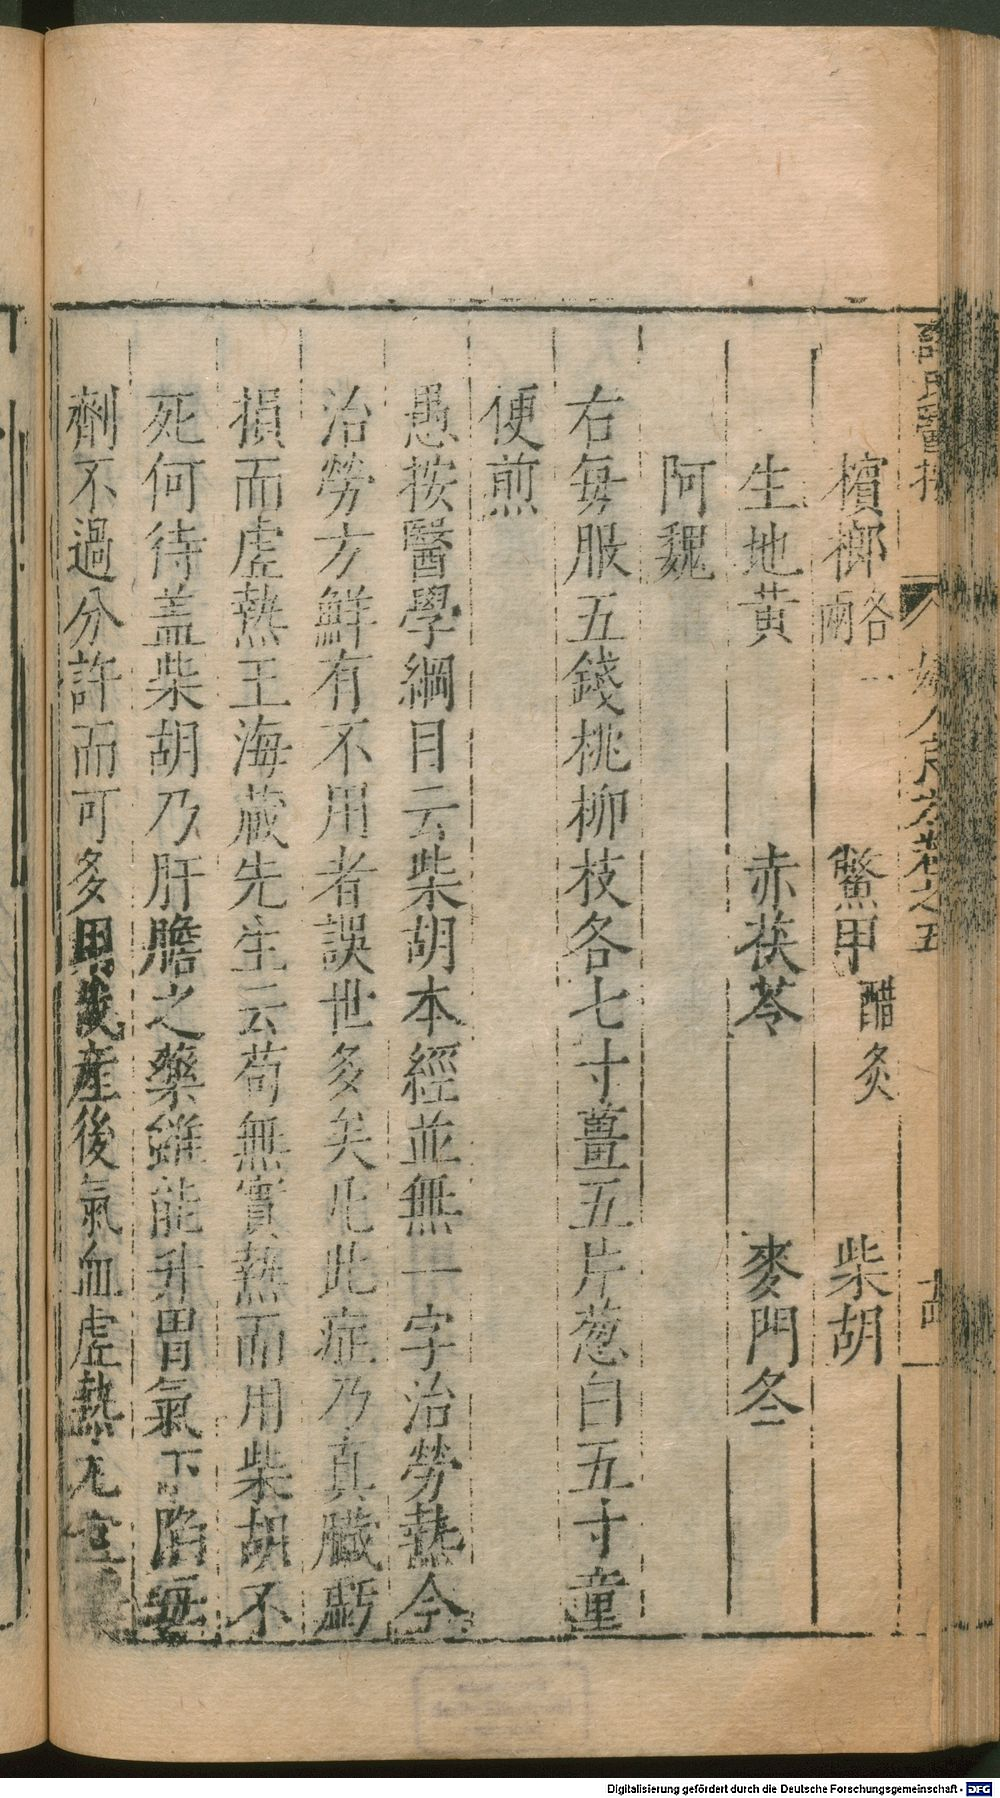 薛氏醫按 婦人良方卷之五 十四
檳榔各一兩 鱉甲醋炙 柴胡
生地黃 赤茯苓 麥門冬
阿魏
右每服五錢桃柳枝各七寸薑五片葱白五寸童
便煎
愚按醫學綱目云柴胡本經並無一字治勞熱今
治勞方鮮有不用者誤世多矣凡此症乃真臟虧
損而虛熱王海藏先生云苟無實熱而用柴胡不
死何待盖柴胡乃肝膽之藥雖能升胃氣下陷每
劑不過分許而可多用哉產後氣血虛熱尤宜
Digitalisierung gefördert durch die Deutsche Forschungsgemeinschaft - DFG